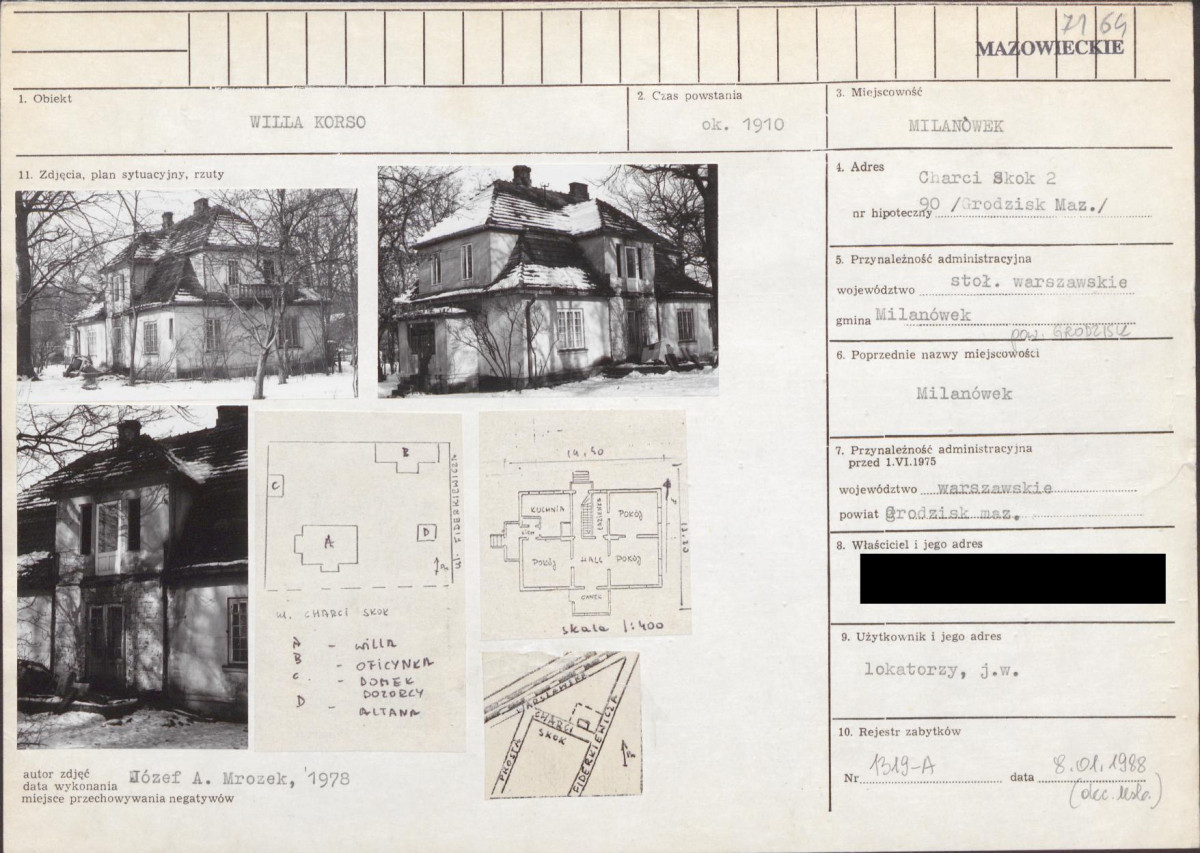 71 64
MAZOWIECKIE
1. Obiekt
WILLA KORSO
2. Czas powstania
ok. 1910
3. Miejscowość
MILANÓWEK
11. Zdjęcia, plan sytuacyjny, rzuty
4. Adres
Charci Skok 2
nr hipoteczny 90 /Grodzisk Maz./
5. Przynależność administracyjna
województwo stoł. warszawskie
gmina Milanówek
pow. GRODZISK
6. Poprzednie nazwy miejscowości
Milanówek
7. Przynależność administracyjna
przed 1.VI.1975
województwo warszawskie
powiat grodzisk maz.
8. Właściciel i jego adres
9. Użytkownik i jego adres
lokatorzy, j.w.
10. Rejestr zabytków
Nr 1319-A data 8.01.1988
B
C
A
D
Pn
UL. FIDERKIEWICZA
ul. CHARCI SKOK
A - WILLA
B - OFICYNKA
C. - DOMEK
DOZORCY
D - ALTANA
14,50
KUCHNIA
ŁAZIENKA
POKÓJ
SIEŃ
POKÓJ
HALL
POKÓJ
GANEK
skala 1:400
WARSZAWSKA
CHARCI
SKOK
PROSTA
FIDERKIEWICZA
Pn
autor zdjęć Józef A. Mrozek, 1978
data wykonania
miejsce przechowywania negatywów